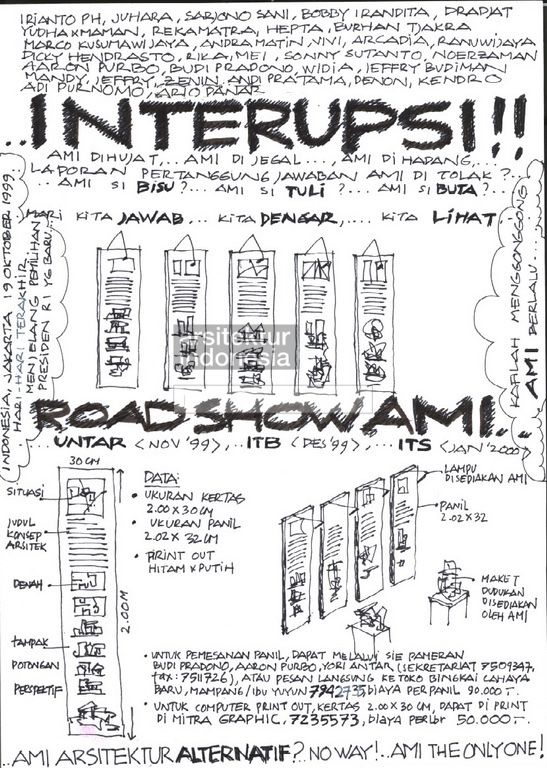 IRIANTO PH, JUHARA, SARJONO SANI, BOBBY IRANDITA, DRADJAT
YUDHAXMAMAN, REKAMATRA, HEPTA, BURHAN TJAKRA
MARCO KUSUMAWIJAYA, ANDRA MATIN, NINI, ARCADIA, RANUWIJAYA
DICKY HENDRASTO, RIKA, MEI, SONNY SUTANTO, NOERZAMAN
AARON PURBO, BUDI PRADONO, WIDIA, JEFFRY BUDIMAN
MANDY, JEFFRY, ZENIN, ANDI PRATAMA, DENON, KENDRO
ADI PURNOMO, ARIO DANAR
..INTERUPSI!!
AMI DIHUJAT,...AMI DI JEGAL...., AMI DI HADANG,...
LAPORAN PERTANGGUNG JAWABAN AMI DI TOLAK?...
AMI SI BISU?... AMI SI TULI?... AMI SI BUTA?...
MARI KITA JAWAB,.. KITA DENGAR,... KITA LIHAT
INDONESIA, JAKARTA 19 OKTOBER 1999
HARI-HARI TERAKHIR
MENJELANG PEMILIHAN
PRESIDEN RI YG BARU..
KAFILAH MENGGONGGONG
AMI BERLALU...
arsitektur
indonesia
ROADSHOW AMI...
...UNTAR <NOV '99>,..ITB <DES '99>,... ITS <JAN '2000>
30 CM
SITUASI
JUDUL
KONSEP
ARSITEK
DENAH
TAMPAK
POTONGAN
PERSPEKTIF
2.00M
DATA:
• UKURAN KERTAS
2.00 X 30 CM
• UKURAN PANIL
2.02 X 32 CM
• PRINT OUT
HITAM X PUTIH
LAMPU
DISEDIAKAN AMI
PANIL
2.02 X 32
MAKET
DUDUKAN
DISEDIAKAN
OLEH AMI
• UNTUK PEMESANAN PANIL, DAPAT MELALUI SIE PAMERAN
BUDI PRADONO, AARON PURBO, YORI ANTAR (SEKRETARIAT 7509347,
fax: 7511726), ATAU PESAN LANGSUNG KE TOKO BINGKAI CAHAYA
BARU, MAMPANG/ibu YUYUN 7942735 biaya PER PANIL 90.000.-
• UNTUK COMPUTER PRINT OUT, KERTAS 2.00 X 30 CM, DAPAT DI PRINT
DI MITRA GRAPHIC, 7235573, biaya perlbr 50.000.-
...AMI ARSITEKTUR ALTERNATIF? NO WAY!..AMI THE ONLY ONE!